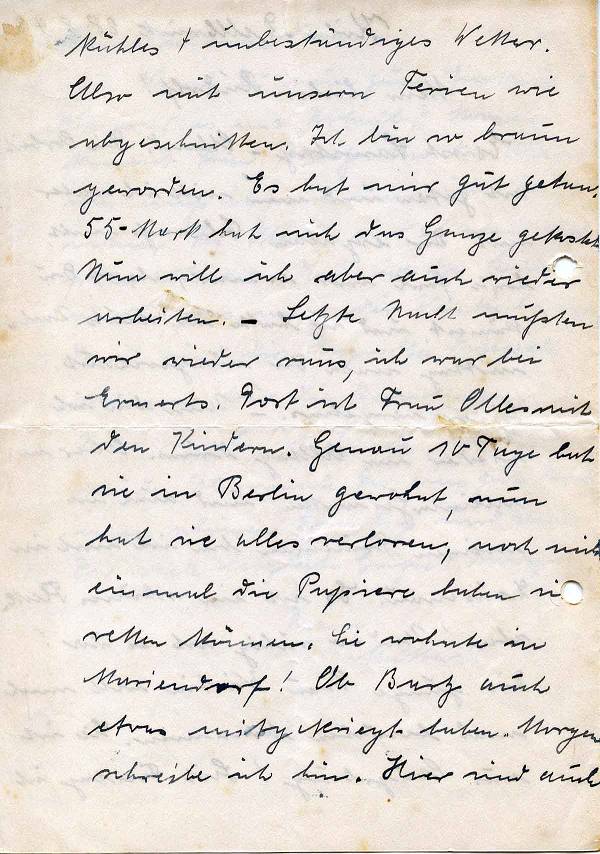 kühles + unbeständiges Wetter.
Also mit unsern Ferien wie
abgeschnitten. Ich bin so braun
geworden. Es hat mir gut getan.
55-Mark hat mich das Ganze gekostet
Nun will ich aber auch wieder
arbeiten. – Letzte Nacht mußten
wir wieder raus, ich war bei
Ermerts. Dort ist Frau mit
den Kindern. Genau 10 Tage hat
sie in Berlin gewohnt, nun
hat sie alles verloren, noch nicht
einmal die Papiere haben sie
retten können. Sie wohnte in
Mariendorf! Ob Bartz auch
etwas mitgekriegt haben. Morgen
schreibe ich hin. Hier sind auch